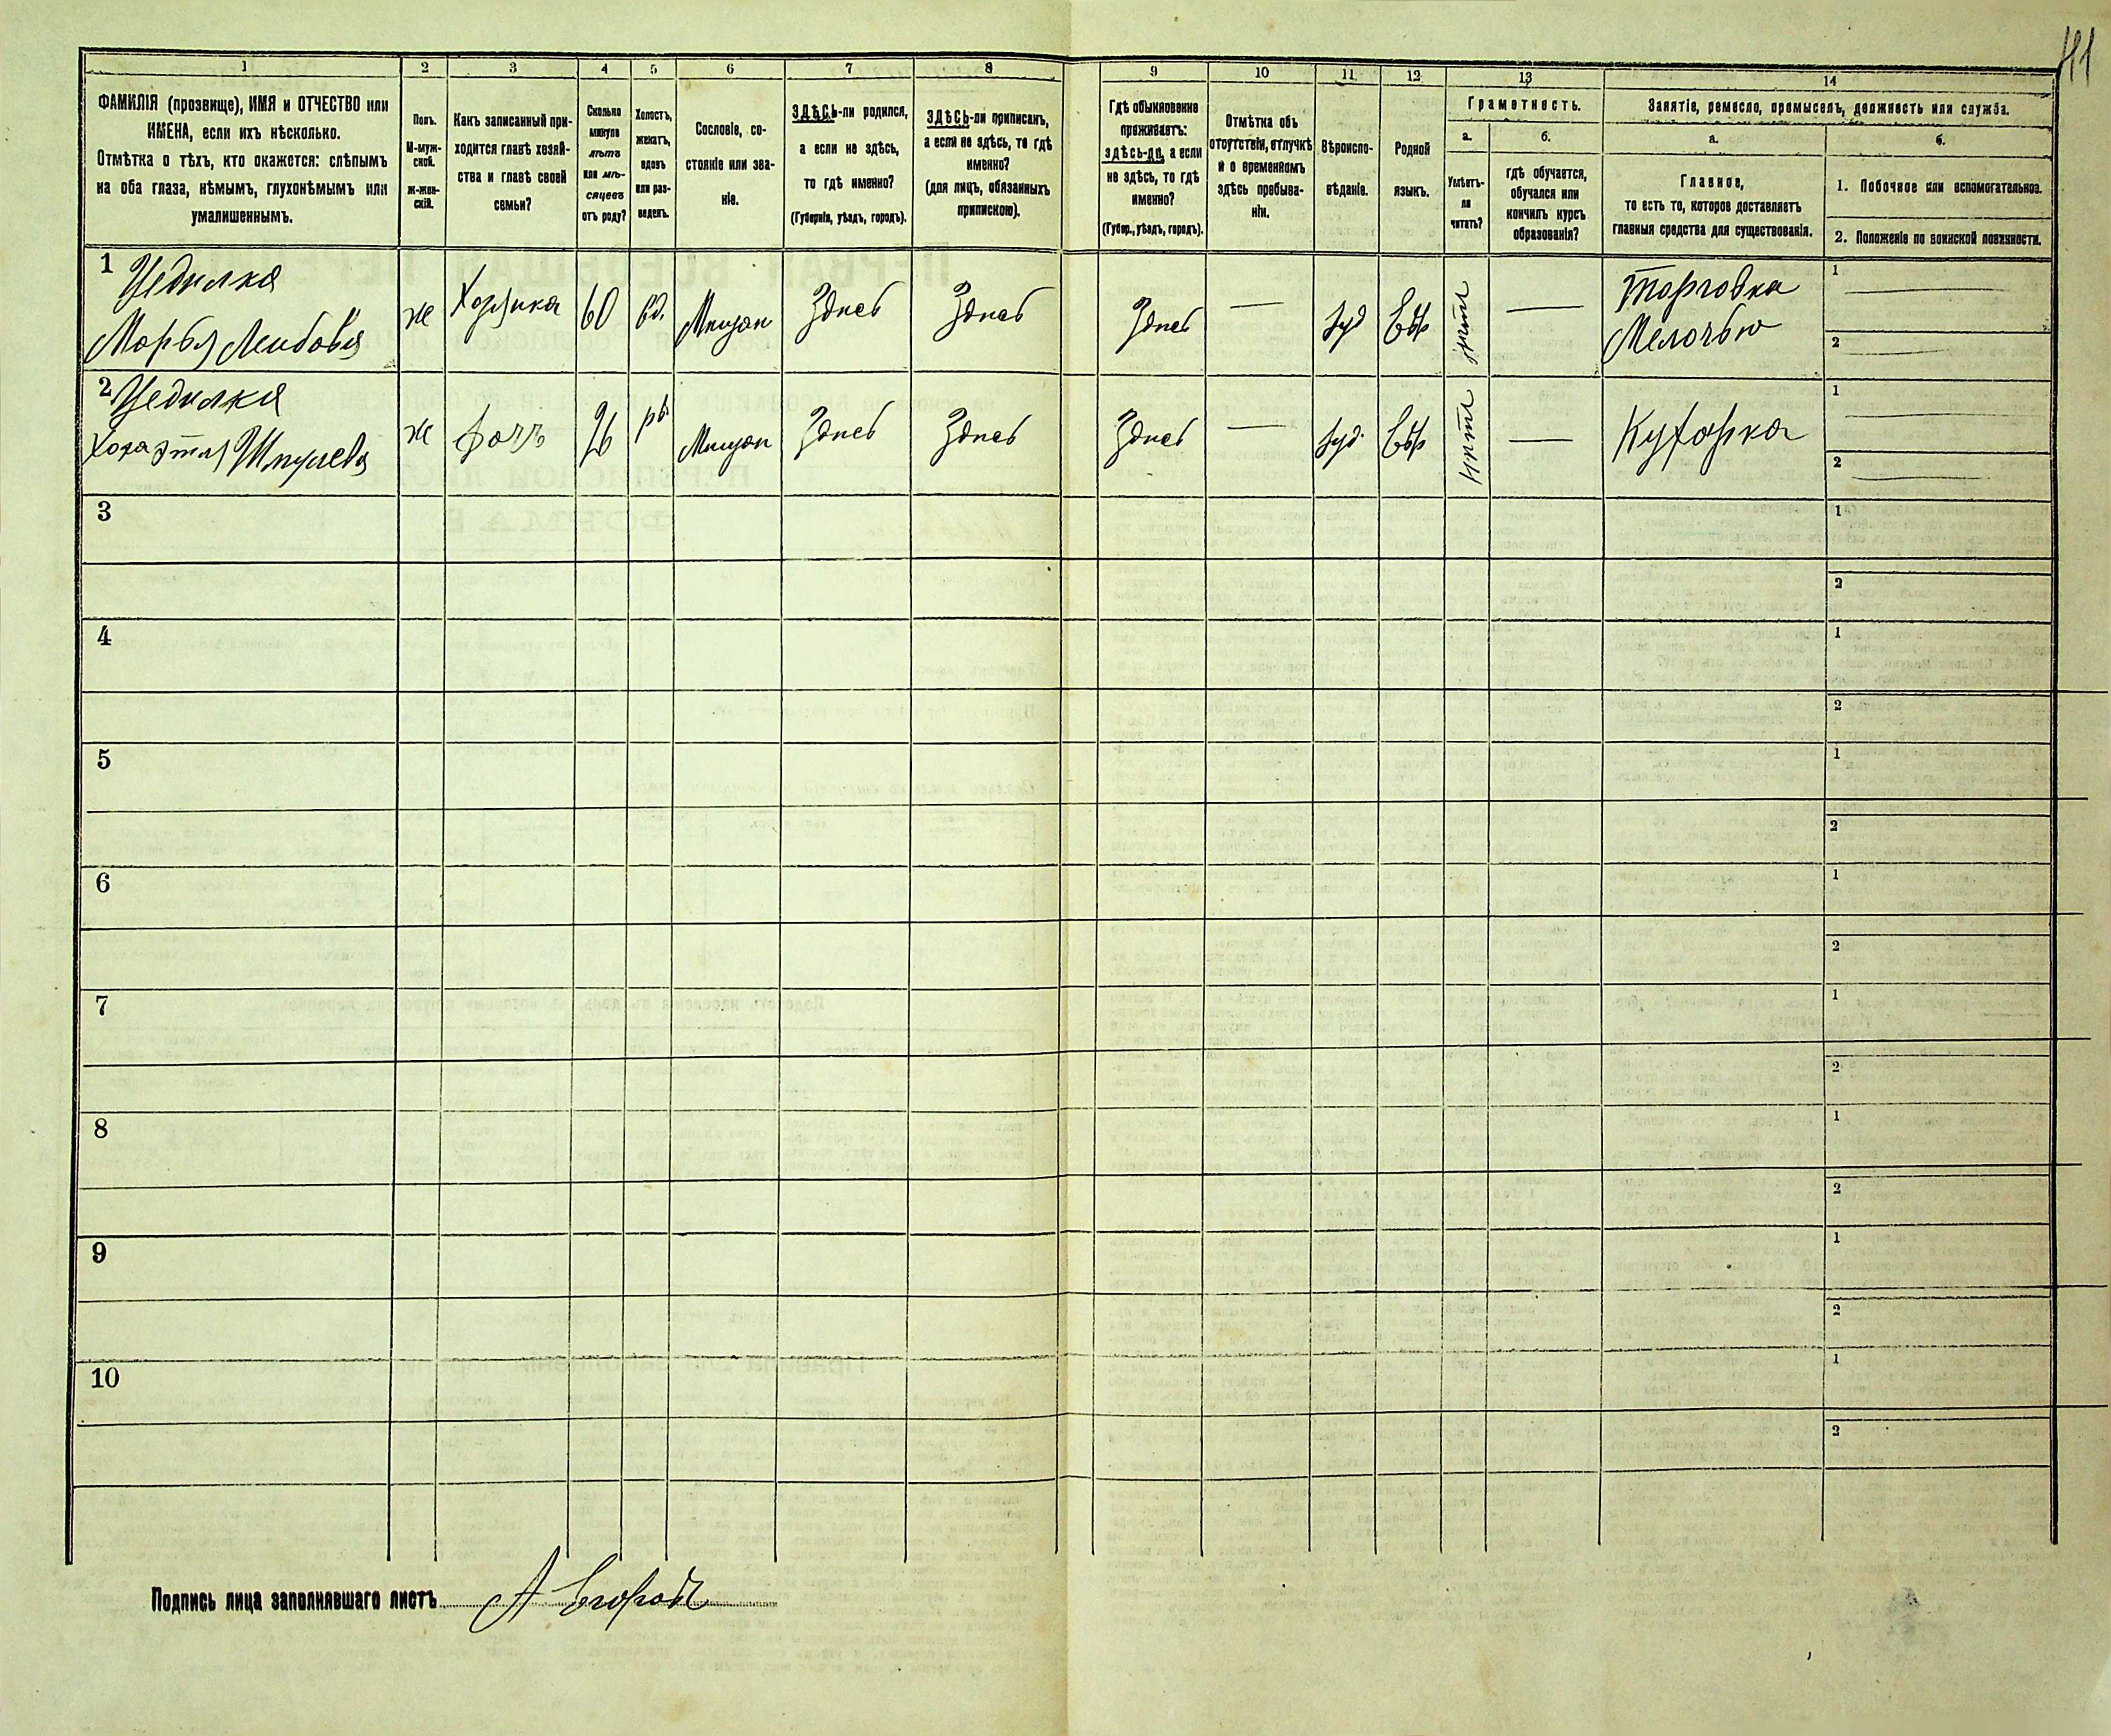 41
1 2 3 4 5 6 7 8 9 10 11 12 13 14
ФАМИЛІЯ (прозвище), ИМЯ и ОТЧЕСТВО или
ИМЕНА, если ихъ нѣсколько.
Отмѣтка о тѣхъ, кто окажется: слѣпымъ
на оба глаза, нѣмымъ, глухонѣмымъ или
умалишеннымъ.
Полъ.
М-муж-
ской.
Ж-жен-
скій.
Какъ записанный при-
ходится главѣ хозяй-
ства и главѣ своей
семьи?
Сколько
минуло
лѣтъ
или мѣ-
сяцевъ
отъ роду?
Холостъ,
женатъ,
вдовъ
или раз-
веденъ.
Сословіе, со-
стояніе или зва-
ніе.
ЗДѢСЬ-ли родился,
а если не здѣсь,
то гдѣ именно?
(Губернія, уѣздъ, городъ).
ЗДѢСЬ-ли приписанъ,
а если не здѣсь, то гдѣ
именно?
(для лицъ, обязанныхъ
припискою).
Гдѣ обыкновенно
проживаетъ:
здѣсь-ли, а если
не здѣсь, то гдѣ
именно?
(Губер., уѣздъ, городъ).
Отмѣтка объ
отсутствіи, отлучкѣ
и о временномъ
здѣсь пребыва-
ніи.
Вѣроиспо-
вѣданіе.
Родной
языкъ.
Грамотность.
а.
Умѣетъ-
ли
читать?
б.
гдѣ обучается,
обучался или
кончилъ курсъ
образованія?
Занятіе, ремесло, промыселъ, должность или служба.
а.
Главное,
то есть то, которое доставляетъ
главныя средства для существованія.
б.
1. Побочное или вспомогательное.
2. Положеніе по воинской повинности.
1
Марья Лейбова
ж
Хозяйка
60
вд.
Мещан
Здесь
Здесь
Здесь
—
Іуд
Евр
нетъ
—
Торговка
Мелочью
1
2
2
ж
дочь
26
Мещан
Здесь
Здесь
Здесь
—
Іуд.
Евр
нетъ
—
Кухарка
1
2
3
1
2
4
1
2
5
1
2
6
1
2
7
1
2
8
1
2
9
1
2
10
1
2
Подпись лица заполнявшаго листъ А Егоровъ